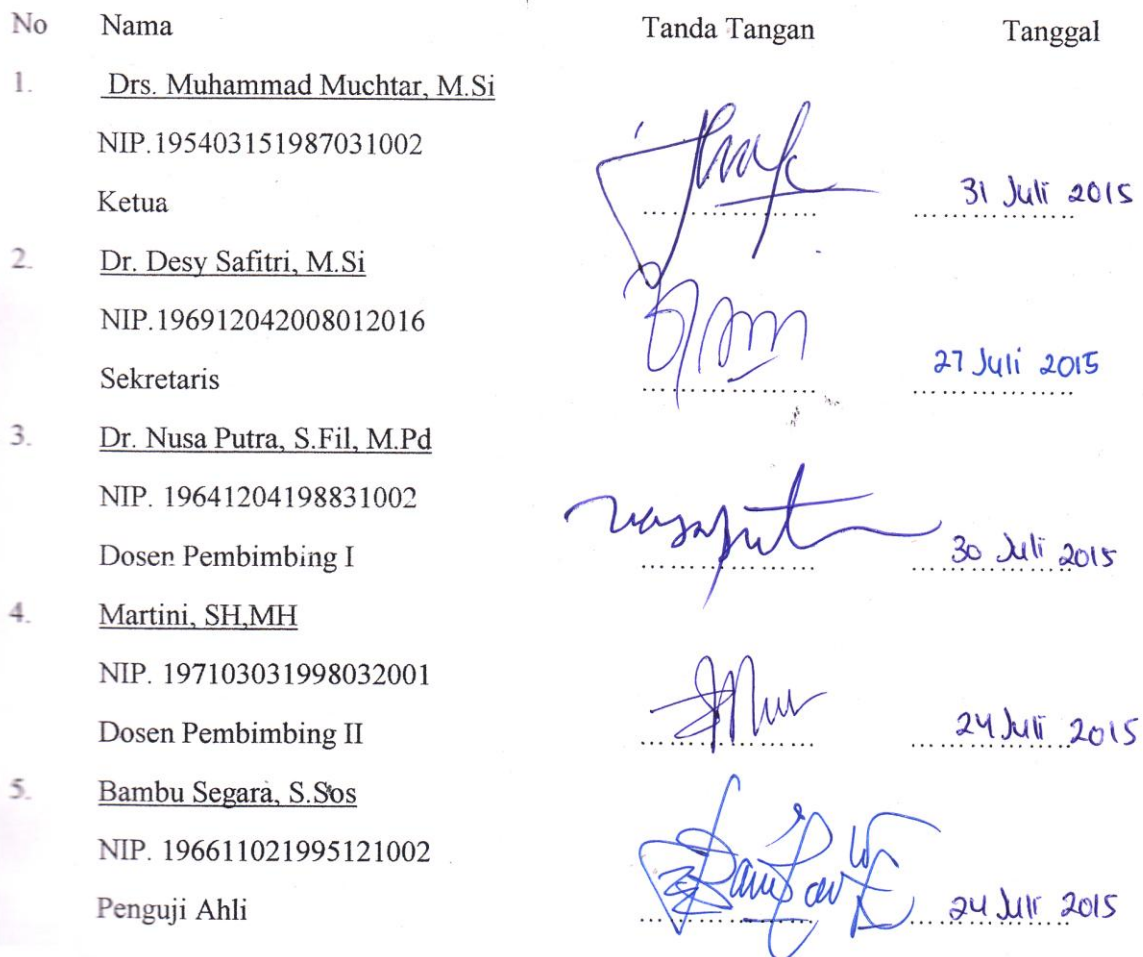 No Nama Tanda Tangan Tanggal
1. Drs. Muhammad Muchtar, M.Si
NIP.195403151987031002
Ketua .................. 31 Juli 2015
2. Dr. Desy Safitri, M.Si
NIP.196912042008012016
Sekretaris .................. 27 Juli 2015
3. Dr. Nusa Putra, S.Fil, M.Pd
NIP. 19641204198831002
Dosen Pembimbing I .................. 30 Juli 2015
4. Martini, SH,MH
NIP. 197103031998032001
Dosen Pembimbing II .................. 24 Juli 2015
5. Bambu Segara, S.Sos
NIP. 196611021995121002
Penguji Ahli .................. 24 Juli 2015